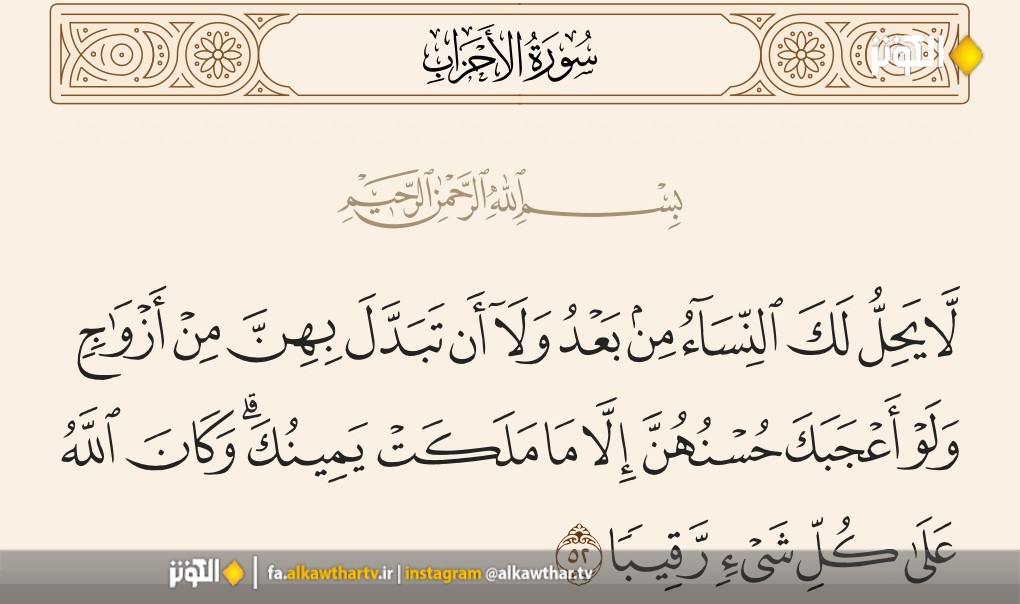 سُورَةُ الأَحْزَابِ
الكوثر
بِسْمِ اللَّهِ الرَّحْمَٰنِ الرَّحِيمِ
لَّا يَحِلُّ لَكَ ٱلنِّسَآءُ مِنۢ بَعْدُ وَلَآ أَن تَبَدَّلَ بِهِنَّ مِنْ أَزْوَٰجٍ
وَلَوْ أَعْجَبَكَ حُسْنُهُنَّ إِلَّا مَا مَلَكَتْ يَمِينُكَ ۗ وَكَانَ ٱللَّهُ
عَلَىٰ كُلِّ شَىْءٍ رَّقِيبًا ٥٢
الكوثر | fa.alkawthartv.ir | instagram @alkawthar.tv